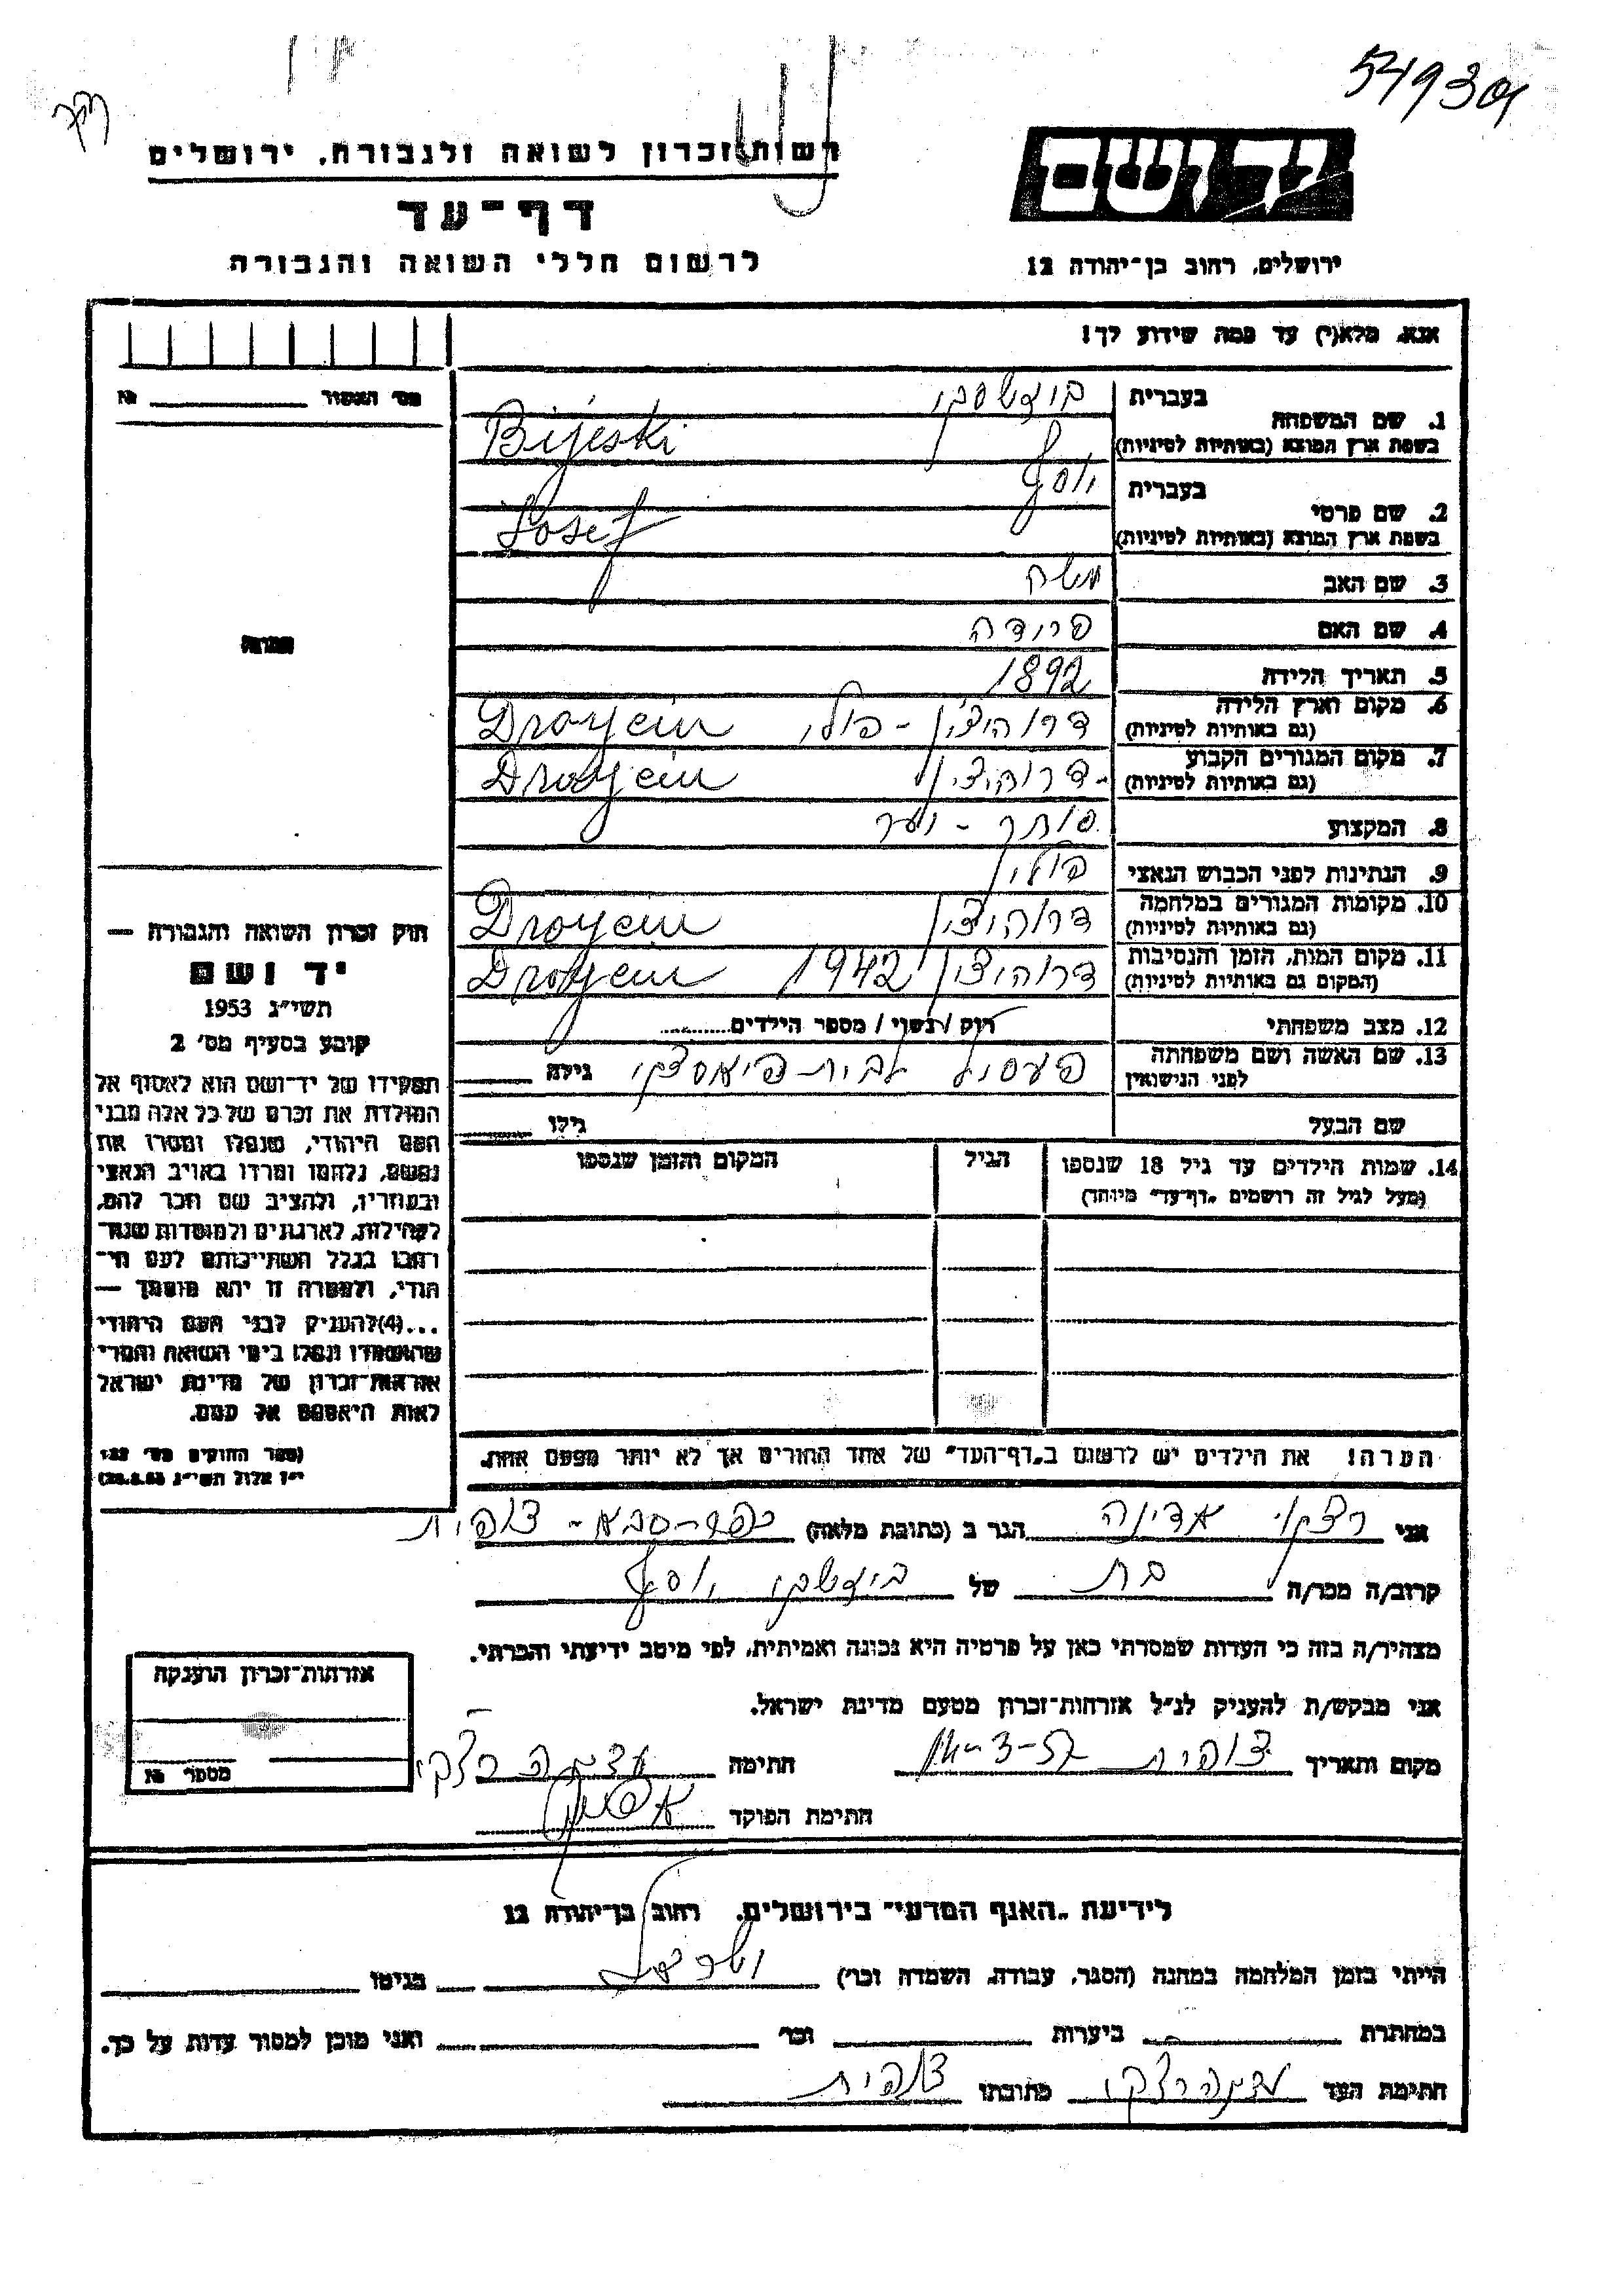 549309
רשות זכרון לשואה ולגבורה, ירושלים
יד ושם
דף־עד
לרשום חללי השואה והגבורה
ירושלים, רחוב בן־יהודה 12
אנא, מלא(י) עד כמה שידוע לך!
מס׳ האשור № 
1. שם המשפחה בעברית
בשפת ארץ המוצא (באותיות לטיניות) Bijeski
2. שם פרטי בעברית יוסף
בשפת ארץ המוצא (באותיות לטיניות) Josef
3. שם האב משה
4. שם האם פרודה
5. תאריך הלידה 1892
6. מקום וארץ הלידה דרוהיצין - פולין Droyein
(גם באותיות לטיניות)
7. מקום המגורים הקבוע דרוהיצין Droyein
(גם באותיות לטיניות)
8. המקצוע סוחר - יער
9. הנתינות לפני הכבוש הנאצי פולין
10. מקומות המגורים במלחמה דרוהיצין Droyein
(גם באותיות לטיניות)
11. מקום המות, הזמן והנסיבות דרוהיצין 1942 Droyein
(המקום גם באותיות לטיניות)
12. מצב משפחתי רוק / נשוי / מספר הילדים
13. שם האשה ושם משפחתה לבית גילה
לפני הנישואין
שם הבעל גילו
14. שמות הילדים עד גיל 18 שנספו הגיל המקום והזמן שנספו
(מעל לגיל זה רושמים „דף־עד״ מיוחד)
תמונה
חוק זכרון השואה והגבורה —
יד ושם
תשי״ג 1953
קובע בסעיף מס׳ 2
תפקידו של יד־ושם הוא לאסוף אל
המולדת את זכרם של כל אלה מבני
העם היהודי, שנפלו ומסרו את
נפשם, נלחמו ומרדו באויב הנאצי
ובעוזריו, ולהציב שם וזכר להם,
לקהילות, לארגונים ולמוסדות שנח־
רבו בגלל השתייכותם לעם הי־
הודי, ולמטרה זו יהא מוסמך —
...(4)להעניק לבני העם היהודי
שהושמדו ונפלו בימי השואה והמרי
אזרחות־זכרון של מדינת ישראל
לאות היאספם אל עמם.
(ספר החוקים מס׳ 132
הערה! את הילדים יש לרשום ב„דף־העד״ של אחד ההורים אך לא יותר מפעם אחת.
אני רצקי אדינה הגר ב (כתובת מלאה) כפר-סבא - צופית
קרוב/ה מכר/ה בת של יוסף
מצהיר/ה בזה כי העדות שמסרתי כאן על פרטיה היא נכונה ואמיתית, לפי מיטב ידיעתי והכרתי.
אני מבקש/ת להעניק לנ״ל אזרחות־זכרון מטעם מדינת ישראל.
מקום ותאריך צופית חתימה עדינה רצקי
חתימת הפוקד
אזרחות־זכרון הוענקה
מספר №
לידיעת „האגף המדעי״ בירושלים, רחוב בן־יהודה 12
הייתי בזמן המלחמה במחנה (הסגר, עבודה, השמדה וכו׳) בגיטו
במחתרת ביערות וכו׳ ואני מוכן למסור עדות על כך.
חתימת העד עדינה רצקי כתובתו צופית